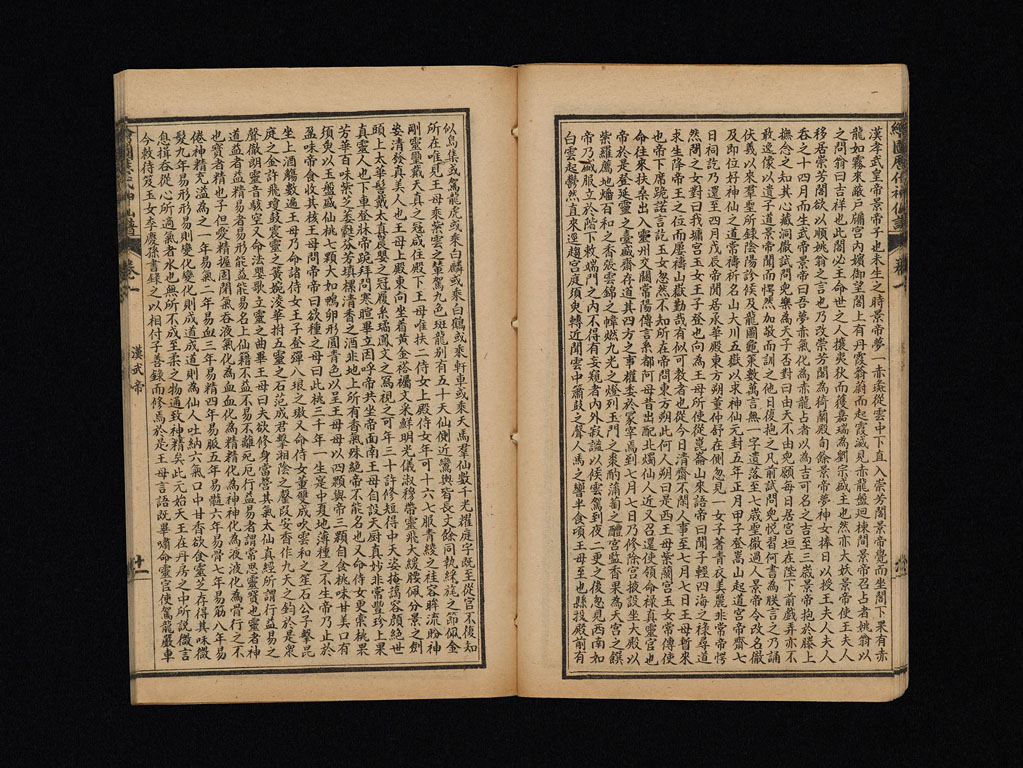 漢孝武皇帝景帝子也未生之時景帝夢一赤彘從雲中下直入崇芳閣景帝覺而坐閣下果有赤
龍如霧來蔽戶牖宮內嬪御望閣上有丹霞蓊蔚而起霞滅見赤龍盤迴棟間景帝召占者姚翁以
之問翁曰吉祥也此閣必生命世之人攘夷狄而獲嘉瑞為劉宗盛主也然亦大妖景帝使王夫人
移居崇芳閣欲以順姚翁之言也乃改崇芳閣為猗蘭殿旬餘景帝夢神女捧日以授王夫人夫人
吞之十四月而生武帝景帝曰吾夢赤氣化為赤龍占者以為吉可名之吉至三歲景帝抱於膝上
撫念之知其心藏洞徹試問兒樂為天子否對曰由天不由兒願每日居宮垣在陛下前戲弄亦不
敢逸豫以遺子道景帝聞而愕然加敬而訓之他日復抱之几前試問兒悅習何書為朕言之乃誦
伏羲以來羣聖所錄陰陽診侯及龍圖龜策數萬言無一字遺落至七歲聖徹過人景帝令改名徹
及即位好神仙之道常禱祈名山大川五嶽以求神仙元封五年正月甲子登嵩山起道宮帝齋七
日祠訖乃還至四月戊辰帝閒居承華殿東方朔董仲舒在側忽見一女子著青衣美麗非常帝愕
然問之女對曰我墉宮玉女王子登也向為王母所使從崑崙山來語帝曰聞子輕四海之祿尋道
求生降帝王之位而屢禱山嶽勤哉有似可教者也從今日清齋不閒人事至七月七日王母暫來
也帝下席跪諾言訖玉女忽然不知所在帝問東方朔此何人朔曰是西王母紫蘭宮玉女常傳使
命往來扶桑出入靈州交關常陽傳言系都阿母昔出配北燭仙人近又召還使領命祿真靈官也
帝於是登延靈之臺盛齋存道其四方之事權委於冢宰焉到七月七日乃修除宮掖設坐大殿以
紫羅薦地燔百和之香張雲錦之幃燃九光之燈列玉門之棗酌蒲萄之醴宮監香果為天宮之饌
帝乃盛服立於階下敕端門之內不得有妄窺者內外寂謐以俟雲駕到夜二更之後忽見西南如
白雲起鬱然直來逕趨宮庭須臾轉近聞雲中簫鼓之聲人馬之響半食頃王母至也縣投殿前有
似鳥集或駕龍虎或乘白麟或乘白鶴或乘軒車或乘天馬羣仙數千光耀庭宇既至從官不復知
所在唯見王母乘紫雲之輦駕九色斑龍別有五十天仙側近鸞輿皆長丈餘同執綵旄之節佩金
剛靈璽戴天真之冠咸住殿下王母唯扶二侍女上殿侍女年可十六七服青綾之褂容眸流盼神
姿清發真美人也王母上殿東向坐着黃金褡襡文采鮮明光儀淑穆帶靈飛大綬腰佩分景之劍
頭上太華髻戴太真晨嬰之冠履玄璚鳳文之舄視之可年三十許修短得中天姿掩藹容顏絕世
真靈人也下車登牀帝跪拜問寒暄畢立因呼帝共坐帝面南王母自設天廚真妙非常豐珍上果
芳華百味紫芝萎蕤芬芳填樏清香之酒非地上所有香氣殊絕帝不能名也又命侍女更索桃果
須臾以玉盤盛仙桃七顆大如鴨卵形圓青色以呈王母母以四顆與帝三顆自食桃味甘美口有
盈味帝食收其核王母問帝帝曰欲種之母曰此桃三千一生寔中夏地薄種之不生帝乃止於
坐上酒觴數遍王母乃命諸侍女王子登彈八琅之璈又命侍女董雙成吹雲和之笙石公子擊昆
庭之金許飛瓊鼓震靈之簧婉淩華拊五靈之石范成君擊湘陰之磬段安香作九天之鈞於是眾
聲徹朗靈音駭空又命法嬰歌玄靈之曲畢王母曰夫欲修身當營其氣太仙真經所謂行益易之
道益者益精易者易形能益能易名上仙籍不益不易不離死厄行益易者謂常思靈寶也靈者神
也寶者精也子但愛精握固閉氣吞液氣化為血血化為精精化為神神化為液液化為骨行之不
倦神精充溢為之一年易氣二年易血三年易精四年易脈五年易髓六年易骨七年易筋八年易
髮九年易形形易則變化變化則成道成道則為仙人吐納六氣口中甘香欲食靈芝存得其味微
息揖吞從心所適氣者水也無所不成至柔之物通致神精矣此元始天王在丹房之中所說微言
今敕侍笈玉女李慶孫書錄之以相付子善錄而修焉於是王母言語既畢嘯命靈官使駕龍嚴車
卷一
漢武帝
十一